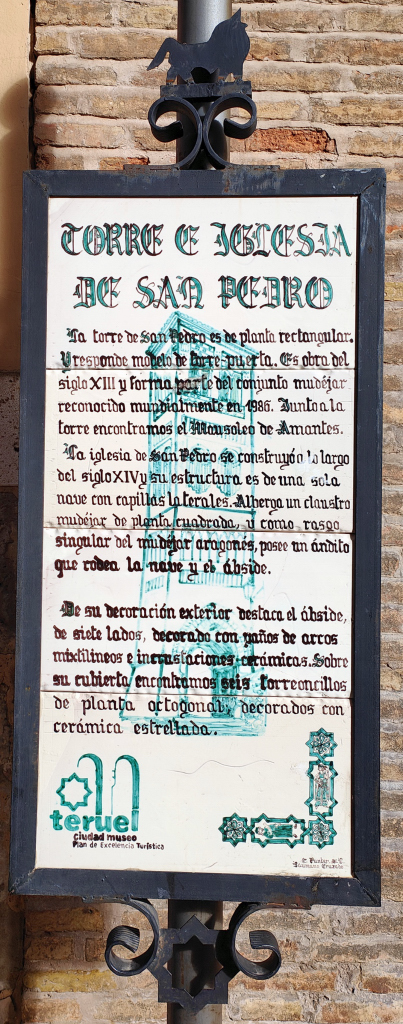 TORRE E IGLESIA
DE SAN PEDRO
La torre de San Pedro es de planta rectangular.
Y responde modelo de torre-puerta. Es obra del
siglo XIII y forma parte del conjunto mudéjar
reconocido mundialmente en 1986. Junto a la
torre encontramos el Mausoleo de Amantes.
La iglesia de San Pedro se construyó a lo largo
del siglo XIV y su estructura es de una sola
nave con capillas laterales. Alberga un claustro
mudéjar de planta cuadrada, y como rasgo
singular del mudéjar aragonés, posee un ándito
que rodea la nave y el ábside.
De su decoración exterior destaca el ábside,
de siete lados, decorado con paños de arcos
mixtilíneos e incrustaciones cerámicas. Sobre
su cubierta encontramos seis torreoncillos
de planta octogonal, decorados con
cerámica estrellada.
teruel
ciudad museo
Plan de Excelencia Turística